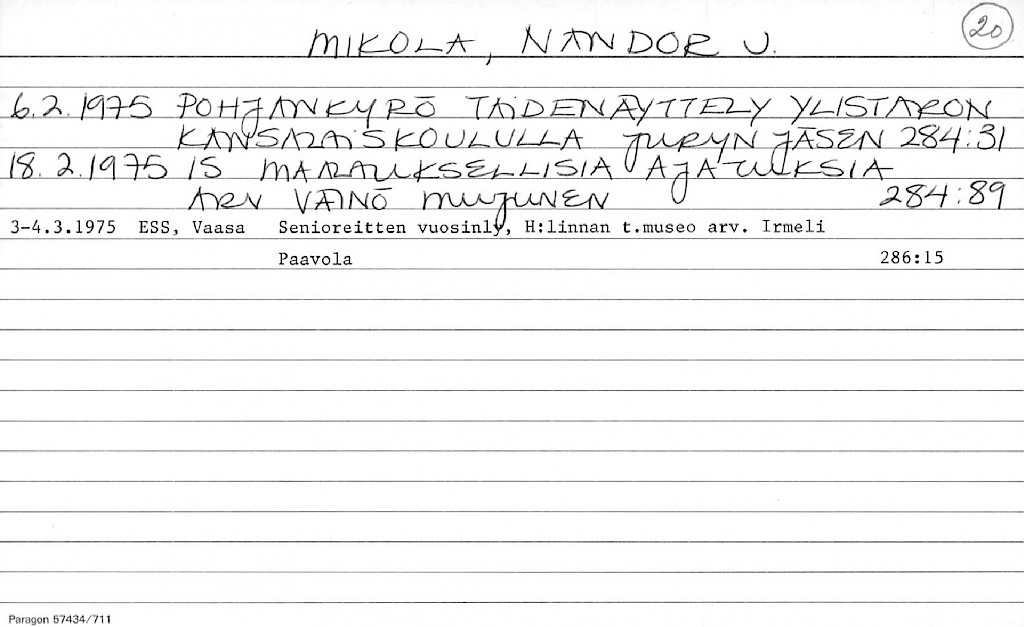 20
MIKOLA, NANDOR J.
6.2.1975 POHJANKYRÖ TAIDENÄYTTELY YLISTARON
KANSALAISKOULULLA JURYN JÄSEN 284:31
18.2.1975 IS MARAUKSELLISIA AJATUKSIA
ARV VÄINÖ MUJUNEN 284:89
3-4.3.1975 ESS, Vaasa Senioreitten vuosinly, H:linnan t.museo arv. Irmeli
Paavola 286:15
Paragon 57434/711